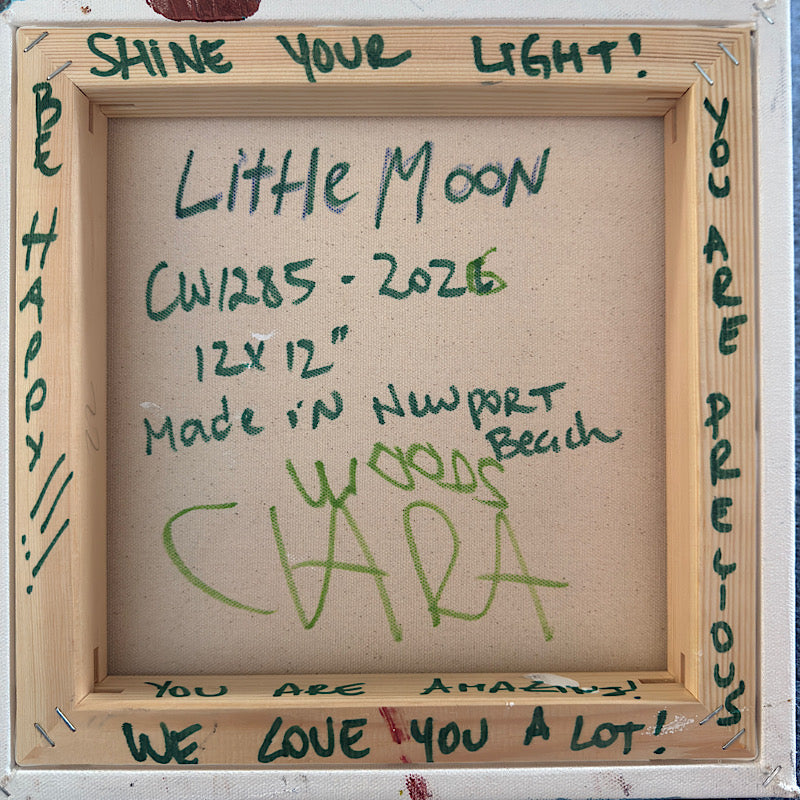 SHINE YOUR LIGHT!
BE HAPPY!!!
YOU ARE PRECIOUS
Little MOON
CW1285 - 2026
12x12"
Made in Newport
Beach
WOODS
CLARA
YOU ARE AMAZING!
WE LOVE YOU A LOT!